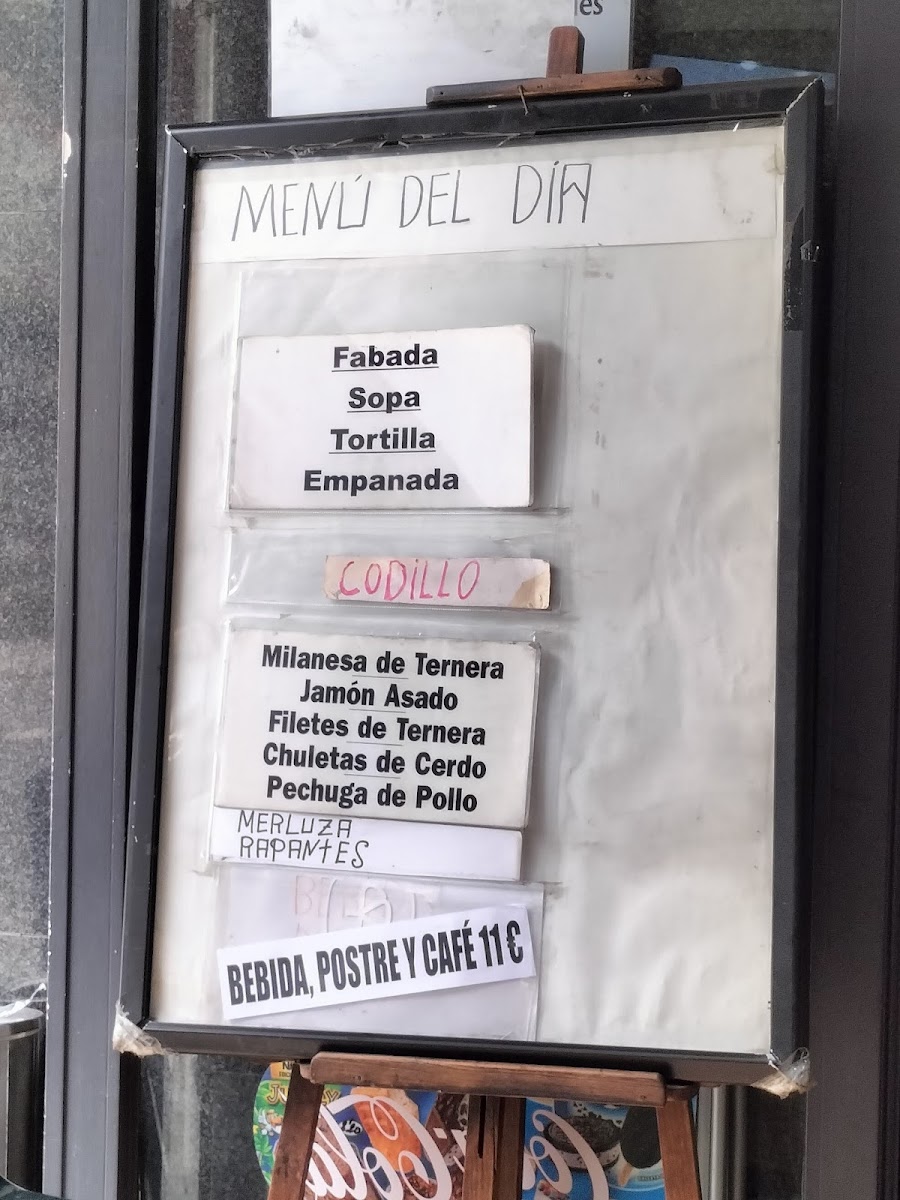 es
MENÚ DEL DÍA
Fabada
Sopa
Tortilla
Empanada
CODILLO
Milanesa de Ternera
Jamón Asado
Filetes de Ternera
Chuletas de Cerdo
Pechuga de Pollo
MERLUZA
RAPANTES
BEBIDA, POSTRE Y CAFÉ 11 €